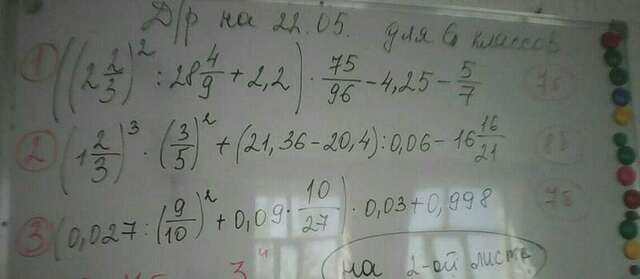 Д/р на 22.05. для 6 классов
1 ((2 2/3)² : 28 4/9 + 2,2) · 75/96 − 4,25 − 5/7
2 (1 2/3)³ · (3/5)² + (21,36 − 20,4) : 0,06 − 16 16/21
3 (0,027 : (9/10)² + 0,09 · 10/27) · 0,03 + 0,998
на 2-ой листе